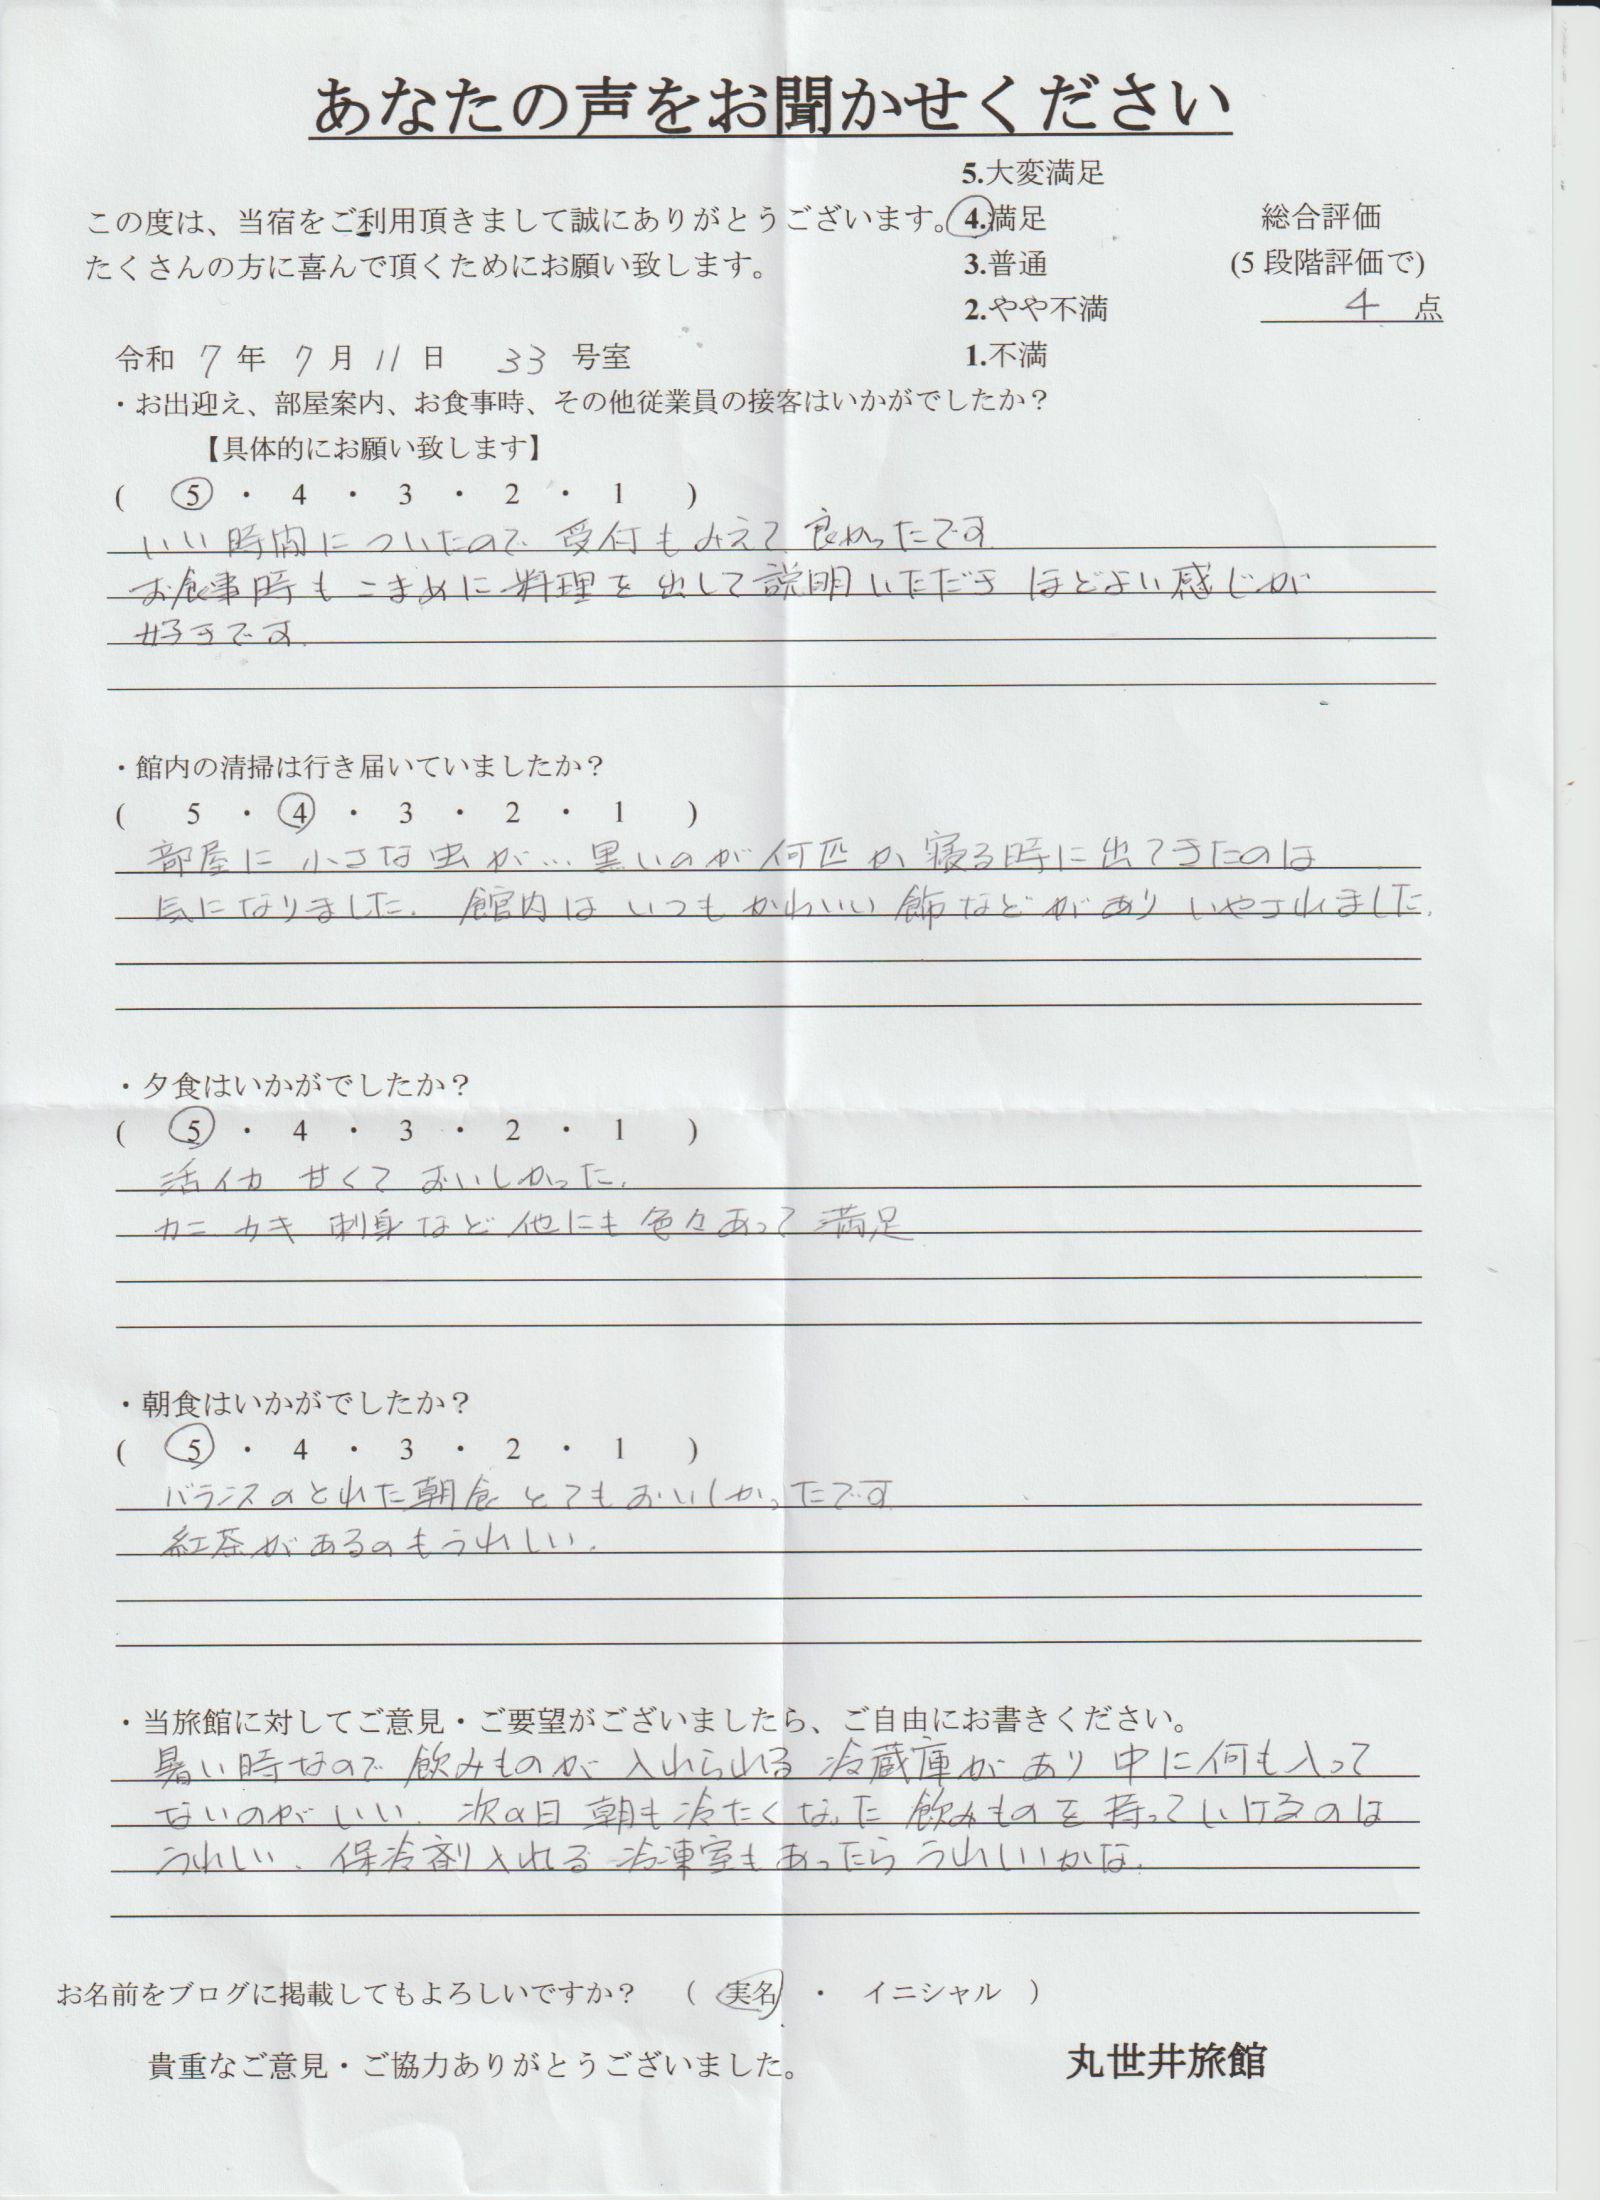 あなたの声をお聞かせください
5.大変満足
この度は、当宿をご利用頂きまして誠にありがとうございます。 4.満足 総合評価
たくさんの方に喜んで頂くためにお願い致します。 3.普通 (5段階評価で)
2.やや不満 4 点
令和 7 年 7 月 11 日 33 号室 1.不満
・お出迎え、部屋案内、お食事時、その他従業員の接客はいかがでしたか？
【具体的にお願い致します】
( 5 ・ 4 ・ 3 ・ 2 ・ 1 )
いい時間についたので 受付もみえて 良かったです
お食事時も こまめに料理を出して説明いただき ほどよい感じが
好きです.
・館内の清掃は行き届いていましたか？
( 5 ・ 4 ・ 3 ・ 2 ・ 1 )
部屋に 小さな虫が… 黒いのが何匹か 寝る時に出てきたのは
気になりました. 館内は いつも かわいい飾などがあり いやされました.
・夕食はいかがでしたか？
( 5 ・ 4 ・ 3 ・ 2 ・ 1 )
活イカ 甘くて おいしかった.
カニ カキ 刺身など 他にも色々あって 満足
・朝食はいかがでしたか？
( 5 ・ 4 ・ 3 ・ 2 ・ 1 )
バランスのとれた朝食 とてもおいしかったです
紅茶があるのもうれしい.
・当旅館に対してご意見・ご要望がございましたら、ご自由にお書きください。
暑い時なので 飲みものが 入れられる 冷蔵庫が あり 中に何も入って
ないのがいい. 次の日 朝も冷たくなった 飲みものを 持っていけるのは
うれしい. 保冷剤入れる 冷凍室も あったら うれしいかな.
お名前をブログに掲載してもよろしいですか？ ( 実名 ・ イニシャル )
貴重なご意見・ご協力ありがとうございました。 丸世井旅館